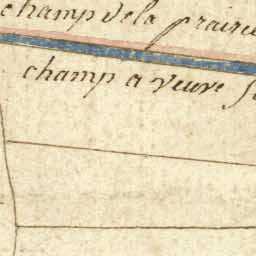 champ de la prairie
champ a veuve